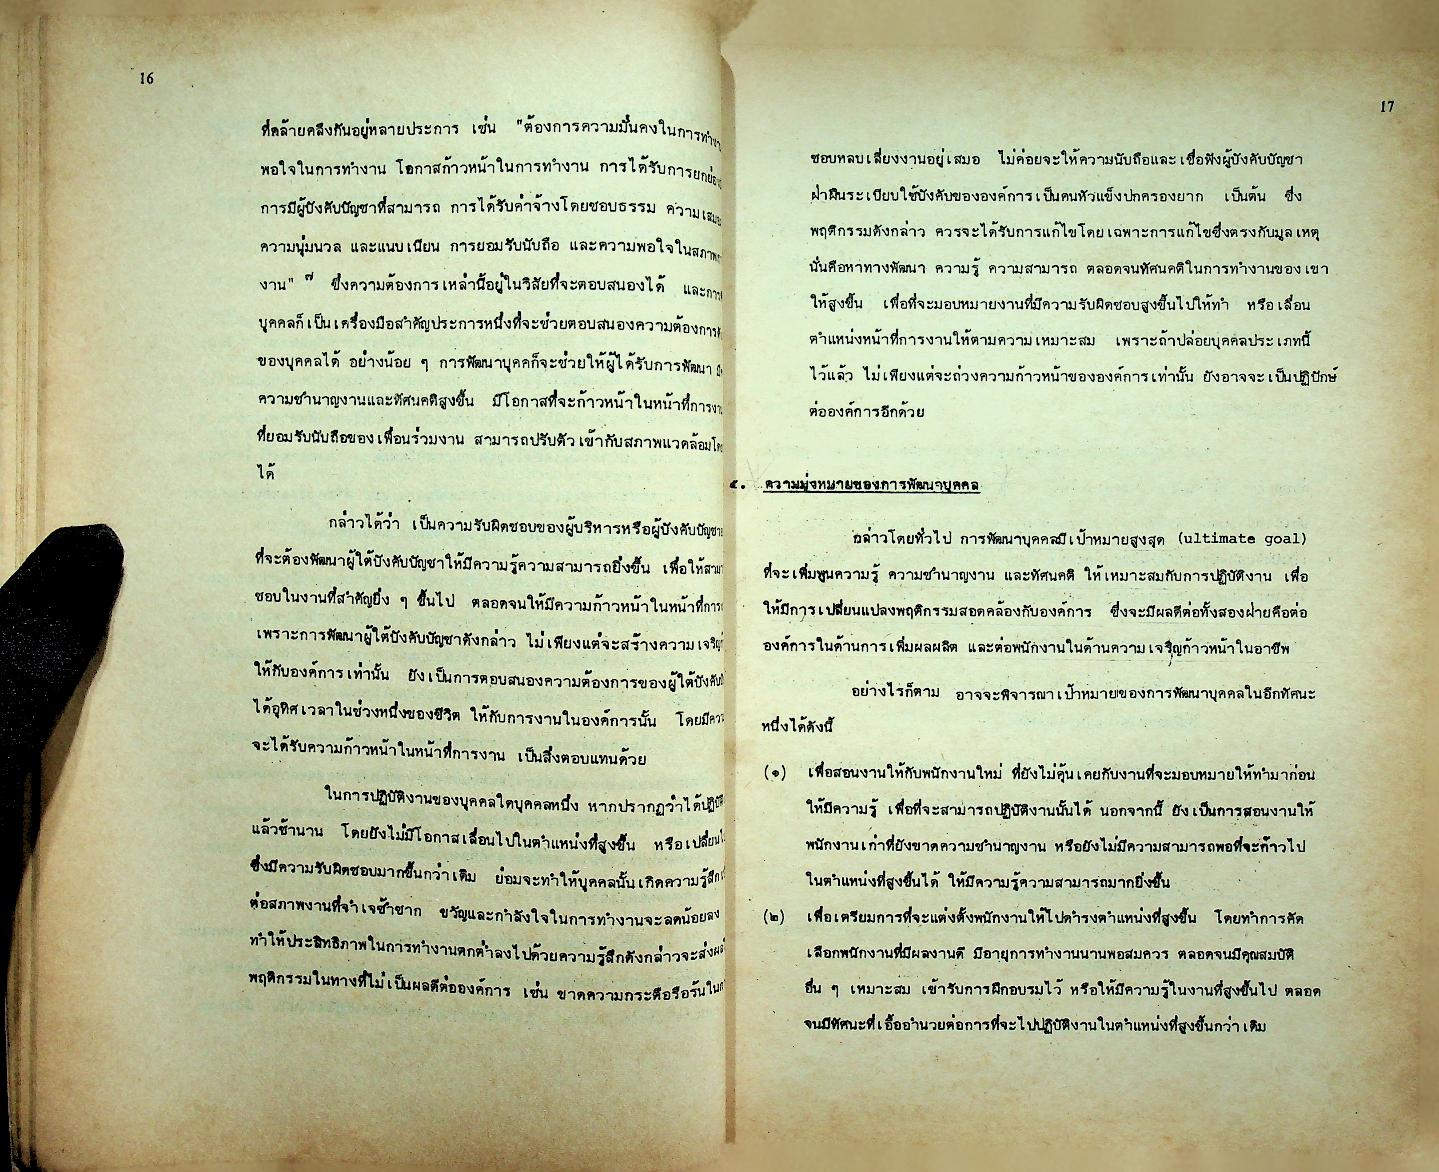 16
ที่คล้ายคลึงกันอยู่หลายประการ เช่น "ต้องการความมั่นคงในการทำงาน
พอใจในการทำงาน โอกาสก้าวหน้าในการทำงาน การได้รับการยกย่อง
การมีผู้บังคับบัญชาที่สามารถ การได้รับค่าจ้างโดยชอบธรรม ความเสมอ
ความนุ่มนวล และแนบเนียน การยอมรับนับถือ และความพอใจในสภาพ
งาน" ๗ ซึ่งความต้องการเหล่านี้อยู่ในวิสัยที่จะตอบสนองได้ และการ
บุคคลก็เป็นเครื่องมือสำคัญประการหนึ่งที่จะช่วยตอบสนองความต้องการ
ของบุคคลได้ อย่างน้อย ๆ การพัฒนาบุคคก็จะช่วยให้ผู้ได้รับการพัฒนา มี
ความชำนาญงานและทัศนคติสูงขึ้น มีโอกาสที่จะก้าวหน้าในหน้าที่การงาน
ที่ยอมรับนับถือของเพื่อนร่วมงาน สามารถปรับตัวเข้ากับสภาพแวดล้อมโดย
ได้
กล่าวได้ว่า เป็นความรับผิดชอบของผู้บริหารหรือผู้บังคับบัญชา
ที่จะต้องพัฒนาผู้ใต้บังคับบัญชาให้มีความรู้ความสามารถยิ่งขึ้น เพื่อให้สามา
ชอบในงานที่สำคัญยิ่ง ๆ ขึ้นไป ตลอดจนให้มีความก้าวหน้าในหน้าที่การ
เพราะการพัฒนาผู้ใต้บังคับบัญชาดังกล่าว ไม่เพียงแต่จะสร้างความเจริญ
ให้กับองค์การเท่านั้น ยังเป็นการตอบสนองความต้องการของผู้ใต้บังคับ
ได้อุทิศเวลาในช่วงหนึ่งของชีวิต ให้กับการงานในองค์การนั้น โดยมีความ
จะได้รับความก้าวหน้าในหน้าที่การงาน เป็นสิ่งตอบแทนด้วย
ในการปฏิบัติงานของบุคคลใดบุคคลหนึ่ง หากปรากฏว่าได้ปฏิบัติ
แล้วช้านาน โดยยังไม่มีโอกาสเลื่อนไปในตำแหน่งที่สูงขึ้น หรือเปลี่ยน
ซึ่งมีความรับผิดชอบมากขึ้นกว่าเดิม ย่อมจะทำให้บุคคลนั้นเกิดความรู้สึก
ต่อสภาพงานที่จำเจซ้ำซาก ขวัญและกำลังใจในการทำงานจะลดน้อยลง
ทำให้ประสิทธิภาพในการทำงานตกต่ำลงไปด้วยความรู้สึกดังกล่าวจะส่งผล
พฤติกรรมในทางที่ไม่เป็นผลดีต่อองค์การ เช่น ขาดความกระตือรือร้นใน
17
ชอบหลบเลี่ยงงานอยู่เสมอ ไม่ค่อยจะให้ความนับถือและเชื่อฟังผู้บังคับบัญชา
ฝ่าฝืนระเบียบใช้บังคับขององค์การเป็นคนหัวแข็งปกครองยาก เป็นต้น ซึ่ง
พฤติกรรมดังกล่าว ควรจะได้รับการแก้ไขโดยเฉพาะการแก้ไขซึ่งตรงกับมูลเหตุ
นั่นคือหาทางพัฒนา ความรู้ ความสามารถ ตลอดจนทัศนคติในการทำงานของเขา
ให้สูงขึ้น เพื่อที่จะมอบหมายงานที่มีความรับผิดชอบสูงขึ้นไปให้ทำ หรือเลื่อน
ตำแหน่งหน้าที่การงานให้ตามความเหมาะสม เพราะถ้าปล่อยบุคคลประเภทนี้
ไว้แล้ว ไม่เพียงแต่จะถ่วงความก้าวหน้าขององค์การเท่านั้น ยังอาจจะเป็นปฏิปักษ์
ต่อองค์การอีกด้วย
๕. ความมุ่งหมายของการพัฒนาบุคคล
กล่าวโดยทั่วไป การพัฒนาบุคคลมีเป้าหมายสูงสุด (ultimate goal)
ที่จะเพิ่มพูนความรู้ ความชำนาญงาน และทัศนคติ ให้เหมาะสมกับการปฏิบัติงาน เพื่อ
ให้มีการเปลี่ยนแปลงพฤติกรรมสอดคล้องกับองค์การ ซึ่งจะมีผลดีต่อทั้งสองฝ่ายคือต่อ
องค์การในด้านการเพิ่มผลผลิต และต่อพนักงานในด้านความเจริญก้าวหน้าในอาชีพ
อย่างไรก็ตาม อาจจะพิจารณาเป้าหมายของการพัฒนาบุคคลในอีกทัศนะ
หนึ่งได้ดังนี้
(๑) เพื่อสอนงานให้กับพนักงานใหม่ ที่ยังไม่คุ้นเคยกับงานที่จะมอบหมายให้ทำมาก่อน
ให้มีความรู้ เพื่อที่จะสามารถปฏิบัติงานนั้นได้ นอกจากนี้ ยังเป็นการสอนงานให้
พนักงานเก่าที่ยังขาดความชำนาญงาน หรือยังไม่มีความสามารถพอที่จะก้าวไป
ในตำแหน่งที่สูงขึ้นได้ ให้มีความรู้ความสามารถมากยิ่งขึ้น
(๒) เพื่อเตรียมการที่จะแต่งตั้งพนักงานให้ไปดำรงตำแหน่งที่สูงขึ้น โดยทำการคัด
เลือกพนักงานที่มีผลงานดี มีอายุการทำงานนานพอสมควร ตลอดจนมีคุณสมบัติ
อื่น ๆ เหมาะสม เข้ารับการฝึกอบรมไว้ หรือให้มีความรู้ในงานที่สูงขึ้นไป ตลอด
จนมีทัศนะที่เอื้ออำนวยต่อการที่จะไปปฏิบัติงานในตำแหน่งที่สูงขึ้นกว่าเดิม